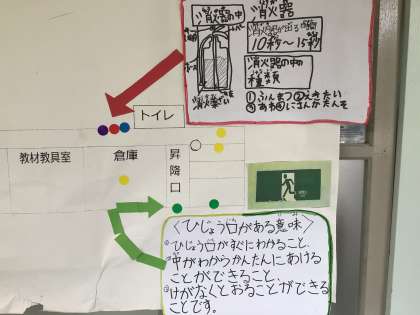 消火器の中
消火器
消火器が出る時間
10秒〜15秒
消火器の中の
種類
①ふんまつ②えきたい
③あわ④にさんかたんそ
トイレ
教材教具室
倉庫
昇降口
〈ひじょう口がある意味〉
①ひじょう口がすぐにわかること、
②中がわからかんたんにあける
ことができること、
③けがなくとおることができる
ことです。